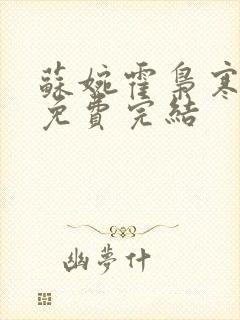 蘇婉霍梟寒
免費完結
幽夢什